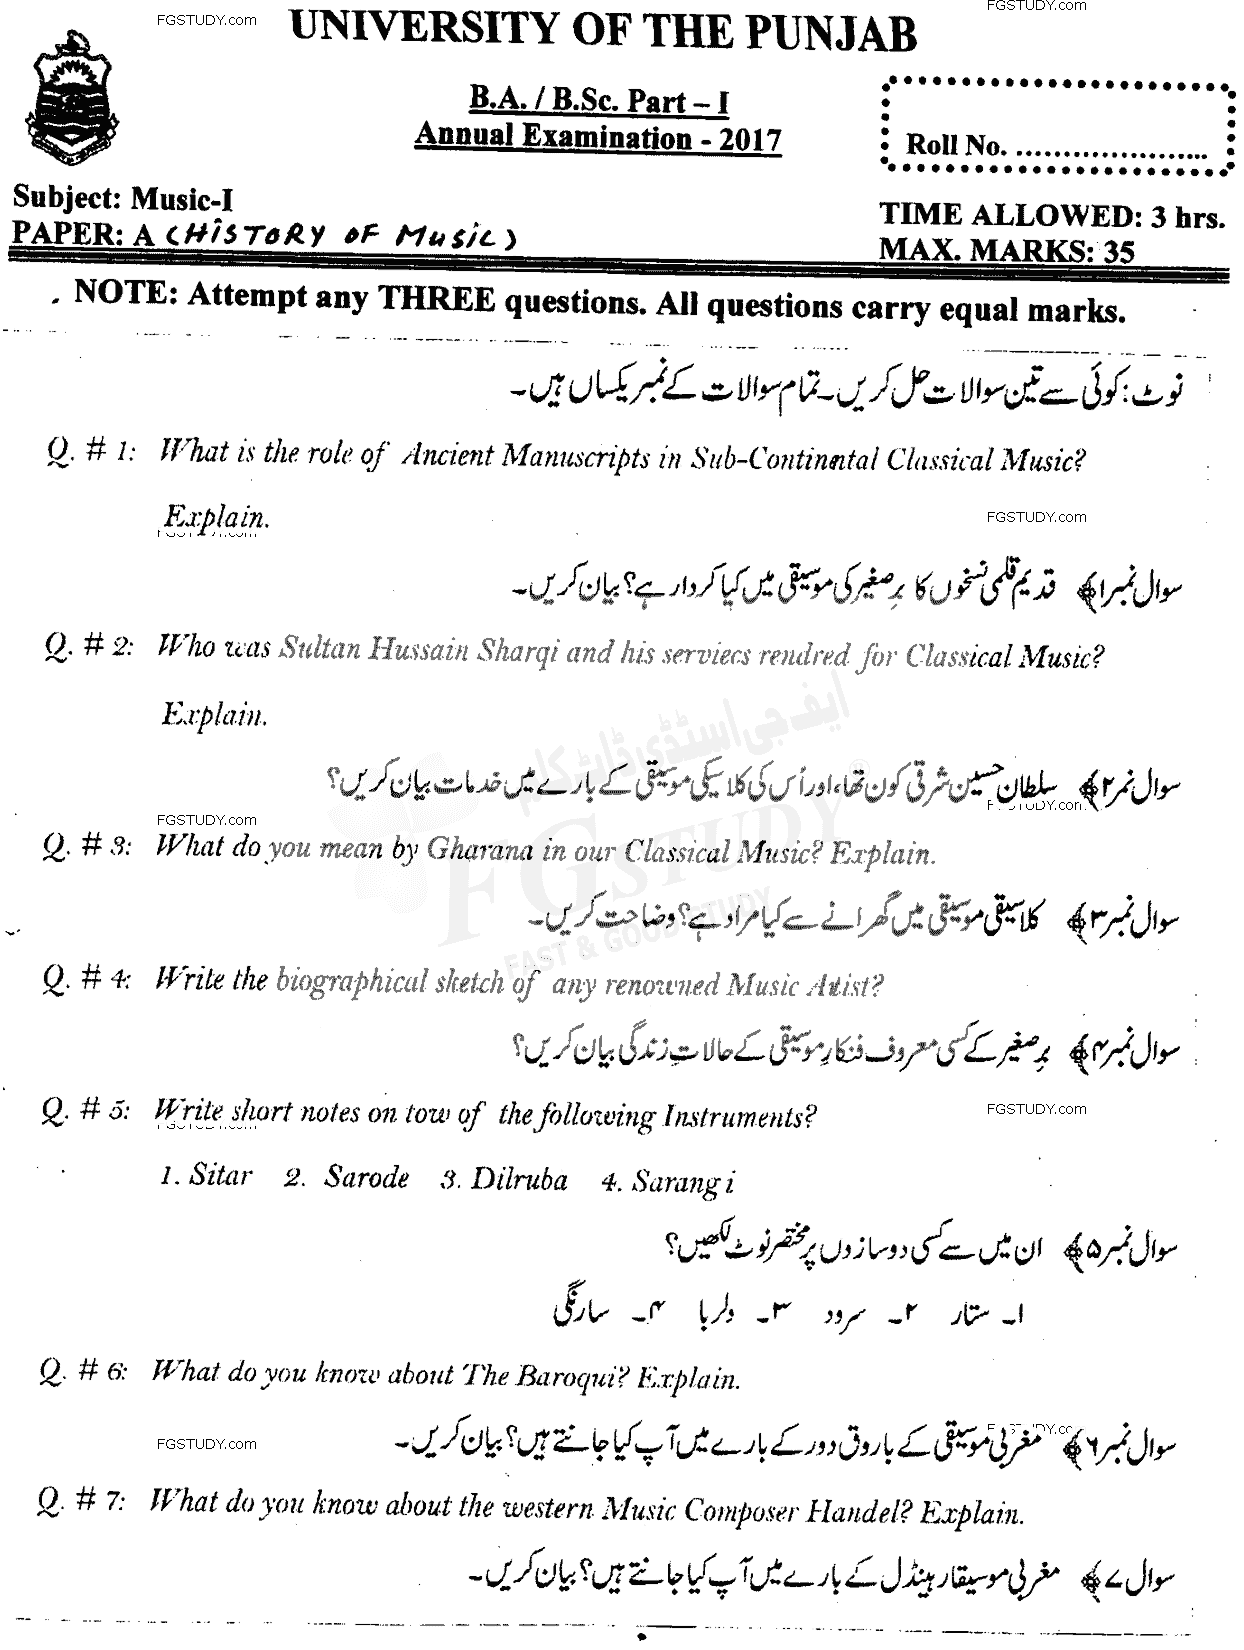 FGSTUDY.com
FGSTUDY.com
UNIVERSITY OF THE PUNJAB
B.A. / B.Sc. Part – I
Annual Examination - 2017
Roll No. ......................
Subject: Music-I
PAPER: A (HISTORY OF MUSIC)
TIME ALLOWED: 3 hrs.
MAX. MARKS: 35
. NOTE: Attempt any THREE questions. All questions carry equal marks.
نوٹ: کوئی سے تین سوالات حل کریں۔ تمام سوالات کے نمبر یکساں ہیں۔
Q. # 1: What is the role of Ancient Manuscripts in Sub-Continental Classical Music?
Explain.
FGSTUDY.com
سوال نمبر۱﴾ قدیم قلمی نسخوں کا برِصغیر کی موسیقی میں کیا کردار ہے؟ بیان کریں۔
Q. # 2: Who was Sultan Hussain Sharqi and his serviecs rendred for Classical Music?
Explain.
ایف جی اسٹڈی ڈاٹ کام
سوال نمبر۲﴾ سلطان حسین شرقی کون تھا، اور اُس کی کلاسیکی موسیقی کے بارے میں خدمات بیان کریں؟
FGSTUDY.com
FGSTUDY.com
Q. # 3: What do you mean by Gharana in our Classical Music? Explain.
FGSTUDY
FAST & GOOD STUDY
سوال نمبر۳﴾ کلاسیقی موسیقی میں گھرانے سے کیا مراد ہے؟ وضاحت کریں۔
Q. # 4: Write the biographical sketch of any renowned Music Artist?
سوال نمبر۴﴾ برِصغیر کے کسی معروف فنکارِ موسیقی کے حالاتِ زندگی بیان کریں؟
Q. # 5: Write short notes on tow of the following Instruments?
FGSTUDY.com
1. Sitar 2. Sarode 3. Dilruba 4. Sarangi
سوال نمبر۵﴾ ان میں سے کسی دو سازوں پر مختصر نوٹ لکھیں؟
۱۔ ستار ۲۔ سرود ۳۔ دلربا ۴۔ سارنگی
Q. # 6: What do you know about The Baroqui? Explain.
FGSTUDY.com
سوال نمبر۶﴾ مغربی موسیقی کے باروق دور کے بارے میں آپ کیا جانتے ہیں؟ بیان کریں۔
Q. # 7: What do you know about the western Music Composer Handel? Explain.
سوال ۷﴾ مغربی موسیقار ہینڈل کے بارے میں آپ کیا جانتے ہیں؟ بیان کریں۔